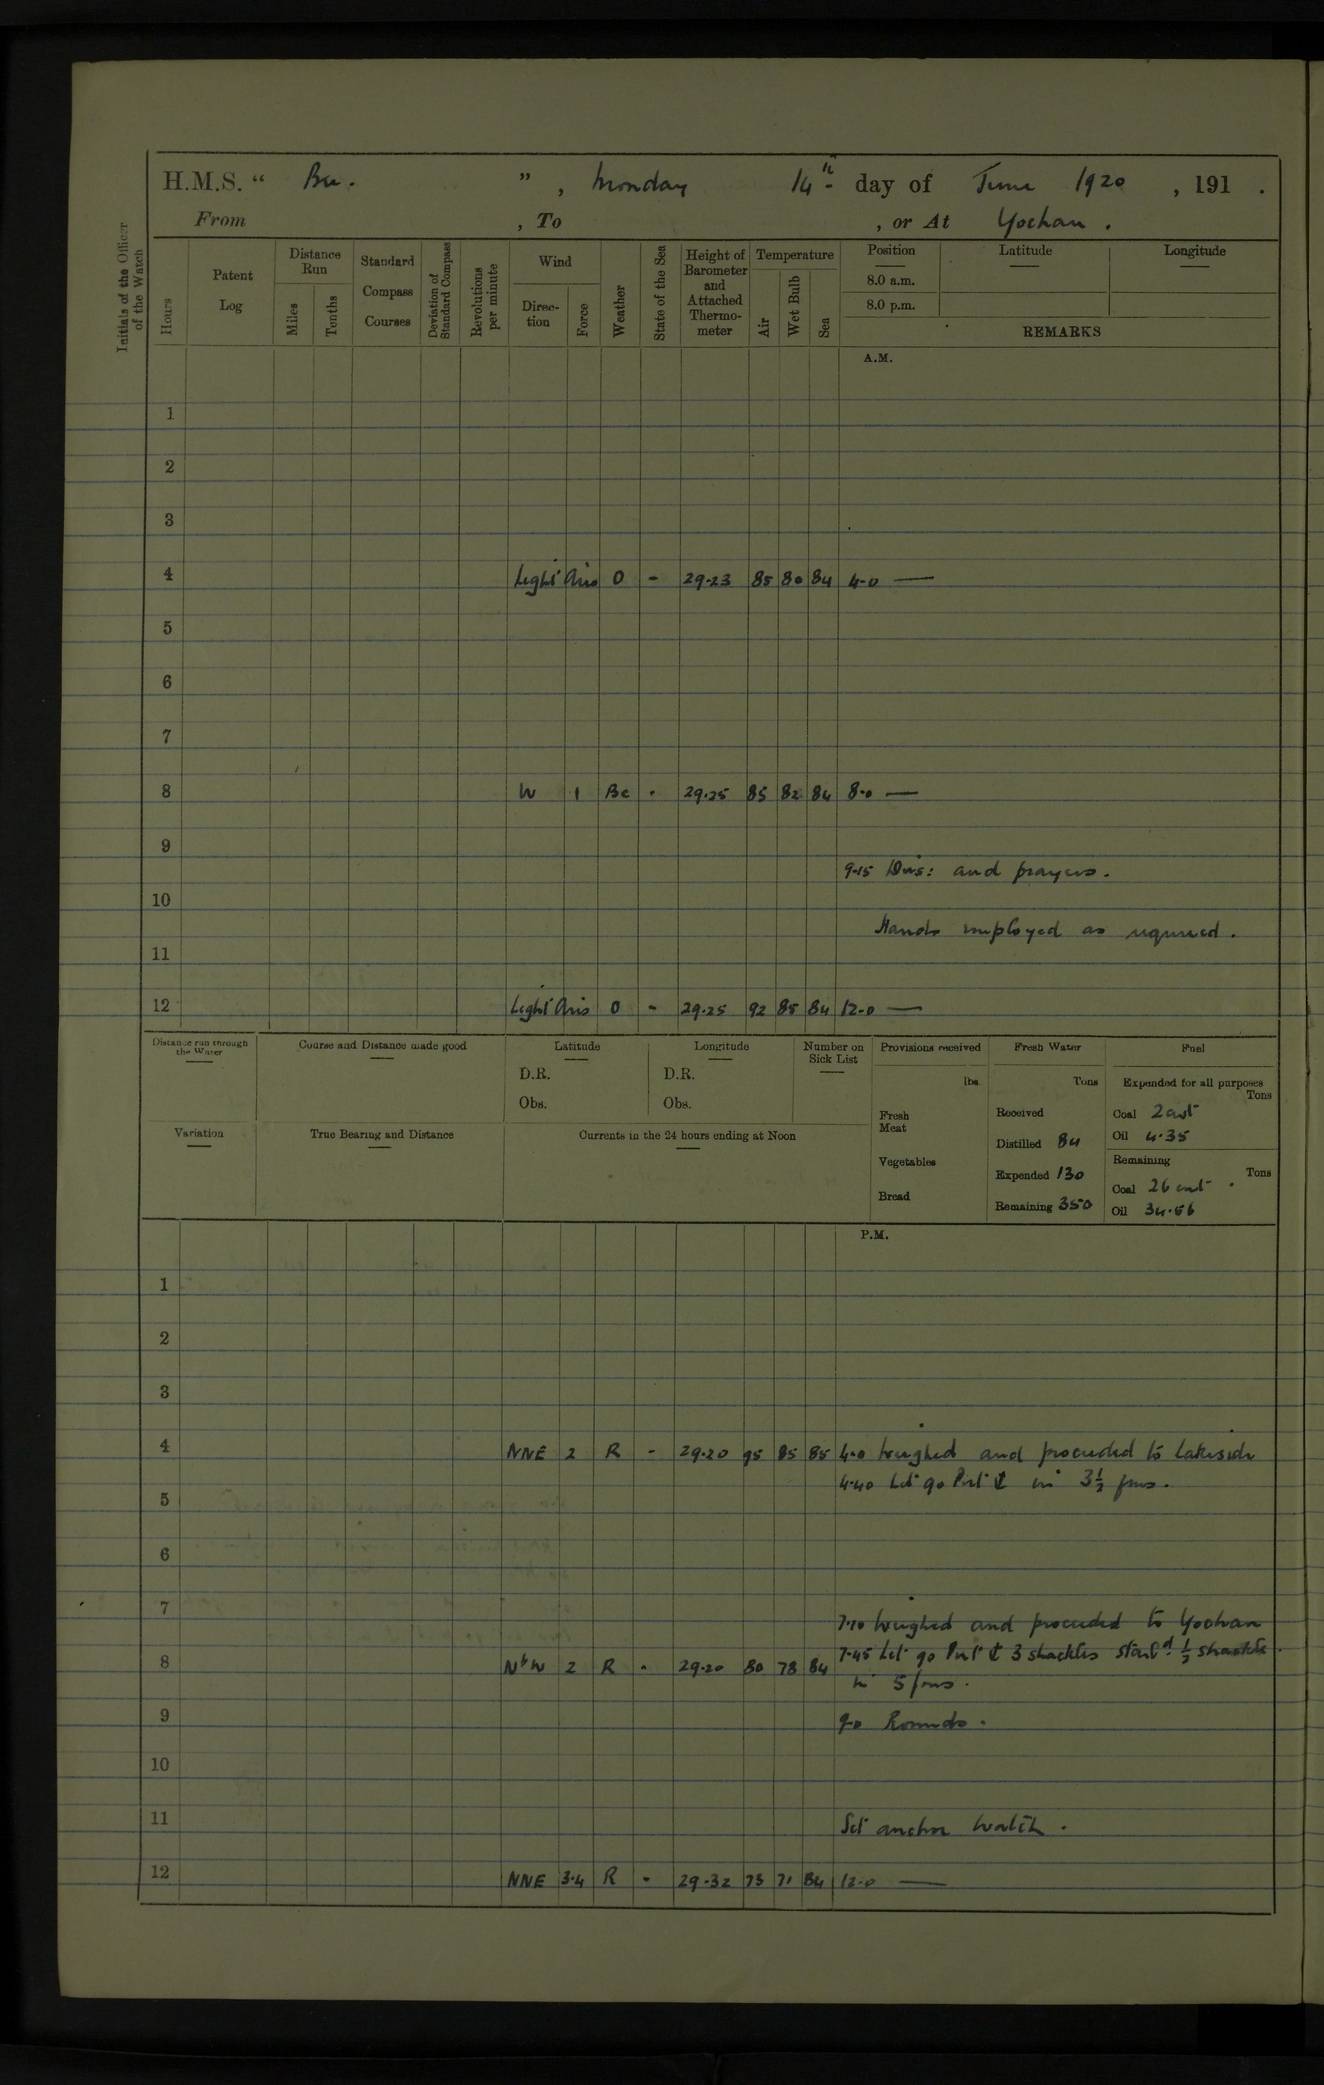 H.M.S. " Bee. " , Monday 14th day of June 1920 , 191 .
From , To , or At Yochau .
Initials of the Officer of the Watch
Hours
Patent Log
Distance Run
Miles
Tenths
Standard Compass Courses
Deviation of Standard Compass
Revolutions per minute
Wind
Direc-tion
Force
Weather
State of the Sea
Height of Barometer and Attached Thermo-meter
Temperature
Air
Wet Bulb
Sea
Position
Latitude
Longitude
8.0 a.m.
8.0 p.m.
REMARKS
A.M.
1
2
3
4 Light Airs O - 29.23 85 80 84 4-0 —
5
6
7
8 W 1 Bc - 29.25 85 82 84 8-0 —
9
9-15 Divs: and prayers.
10
Hands employed as required.
11
12 Light Airs O - 29.25 92 85 84 12-0 —
Distance run through the Water
Course and Distance made good
Latitude
D.R.
Obs.
Longitude
D.R.
Obs.
Number on Sick List
Provisions received
lbs.
Fresh Meat
Vegetables
Bread
Fresh Water
Tons
Received
Distilled 84
Expended 130
Remaining 350
Fuel
Expended for all purposes
Tons
Coal 2 cwt
Oil 4.35
Remaining
Tons
Coal 26 cwt.
Oil 34.66
Variation
True Bearing and Distance
Currents in the 24 hours ending at Noon
P.M.
1
2
3
4 NNE 2 R - 29.20 95 85 85 4-0 Weighed and proceeded to Lakeside
4-40 Let go Port ⚓ in 3½ fms.
5
6
7
7-10 Weighed and proceeded to Yochau
7-45 Let go Port ⚓ 3 shackles Starbd ½ shackle
8 NbW 2 R - 29.20 80 78 84
in 5 fms.
9
9-0 Rounds.
10
11
Set anchor watch.
12 NNE 3.4 R - 29.32 73 71 84 12-0 —